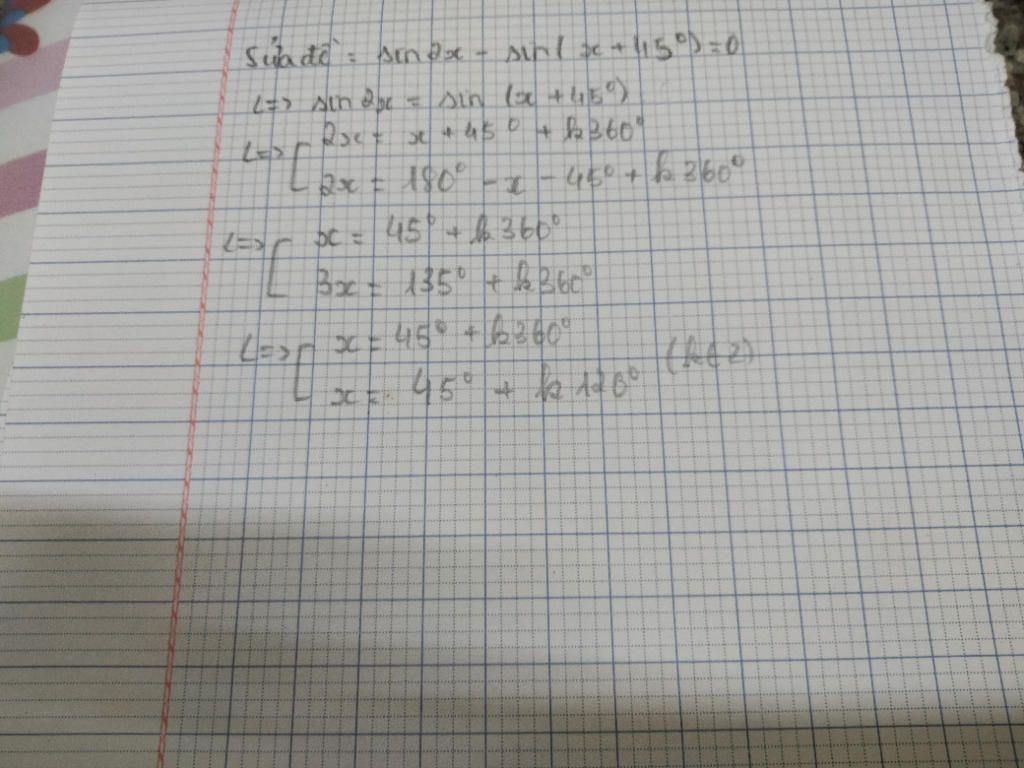 Sửa đề: sin2x - sin(x+45°)=0
<=> sin2x = sin (x+45°)
<=> [ 2x = x+45° + k360°
2x = 180° - x - 45° + k360°
<=> [ x = 45° + k360°
3x = 135° + k360°
<=> [ x = 45° + k360°
x = 45° + k120° (k∈Z)